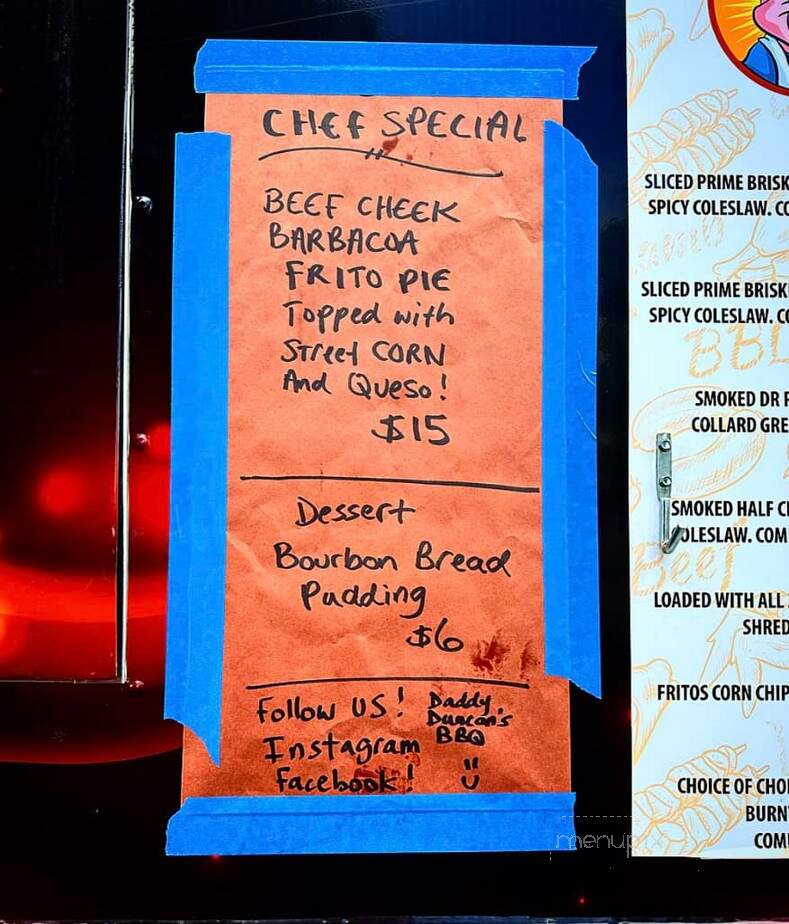 CHEF SPECIAL
BEEF CHEEK
BARBACOA
FRITO PIE
Topped with
Street CORN
And Queso!
$15
Dessert
Bourbon Bread
Pudding
$6
Follow US!
Instagram
Facebook!
Daddy
Duncan's
BBQ
SLICED PRIME
SPICY COLESLAW.
SLICED PRIME
SPICY COLESLAW.
SMOKED DR
COLLARD
SMOKED HALF
LOADED WITH ALL
FRITOS CORN
CHOICE OF
Beef